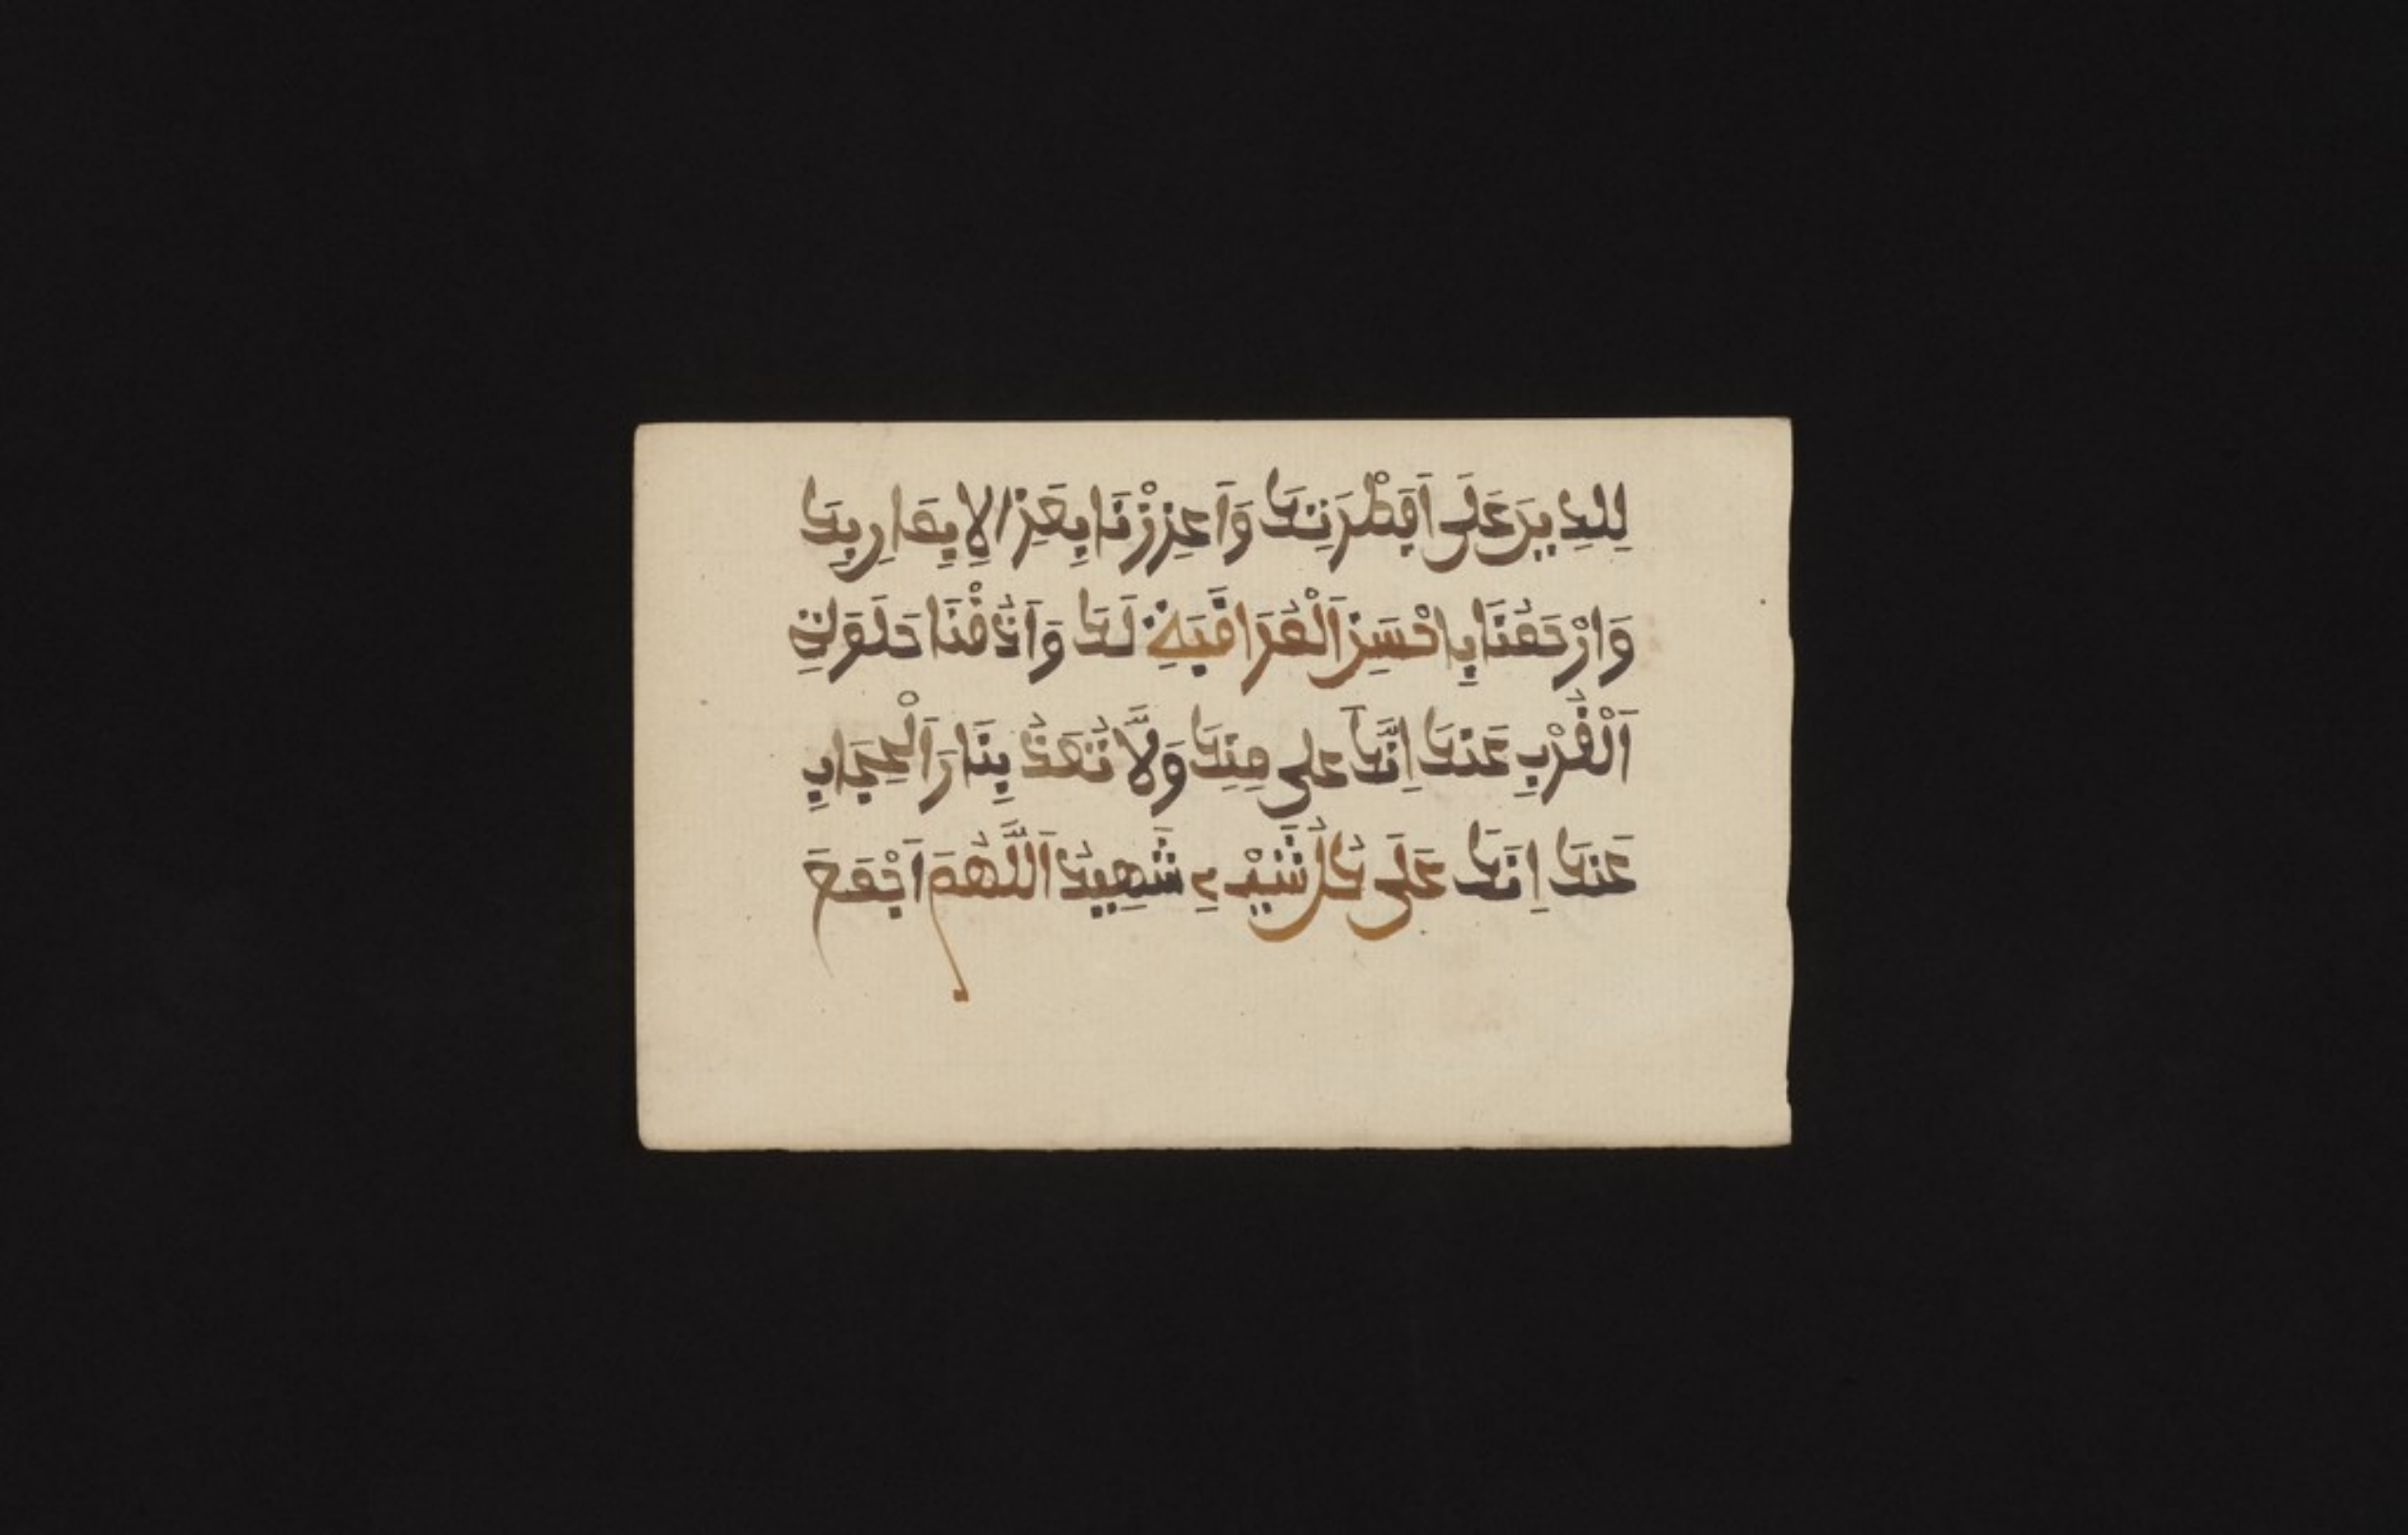 لِلدِيںَ عَلَى اَڢِطْرَتِكَ وَاَعِزِزْنَا بِعَزِ الِايِمَانِ بِكَ
وَارْحَمْنَا بِاحْسَنِ الْمُرَاڧَبَةِ لَكَ وَاَذْڧْنَا حَلَوَتِ
اَلْڧُرْبِ عَنْكَ اِنَّكَ عَلى مِنْكَ وَلَّا تُعَذُ بِنَا رَ الْحِجَابِ
عَنْكَ اِنَكَ عَلَى كُلُ شَيْءٍ شَهِيدُ اَللَّهُمَ اَجْمَعَ